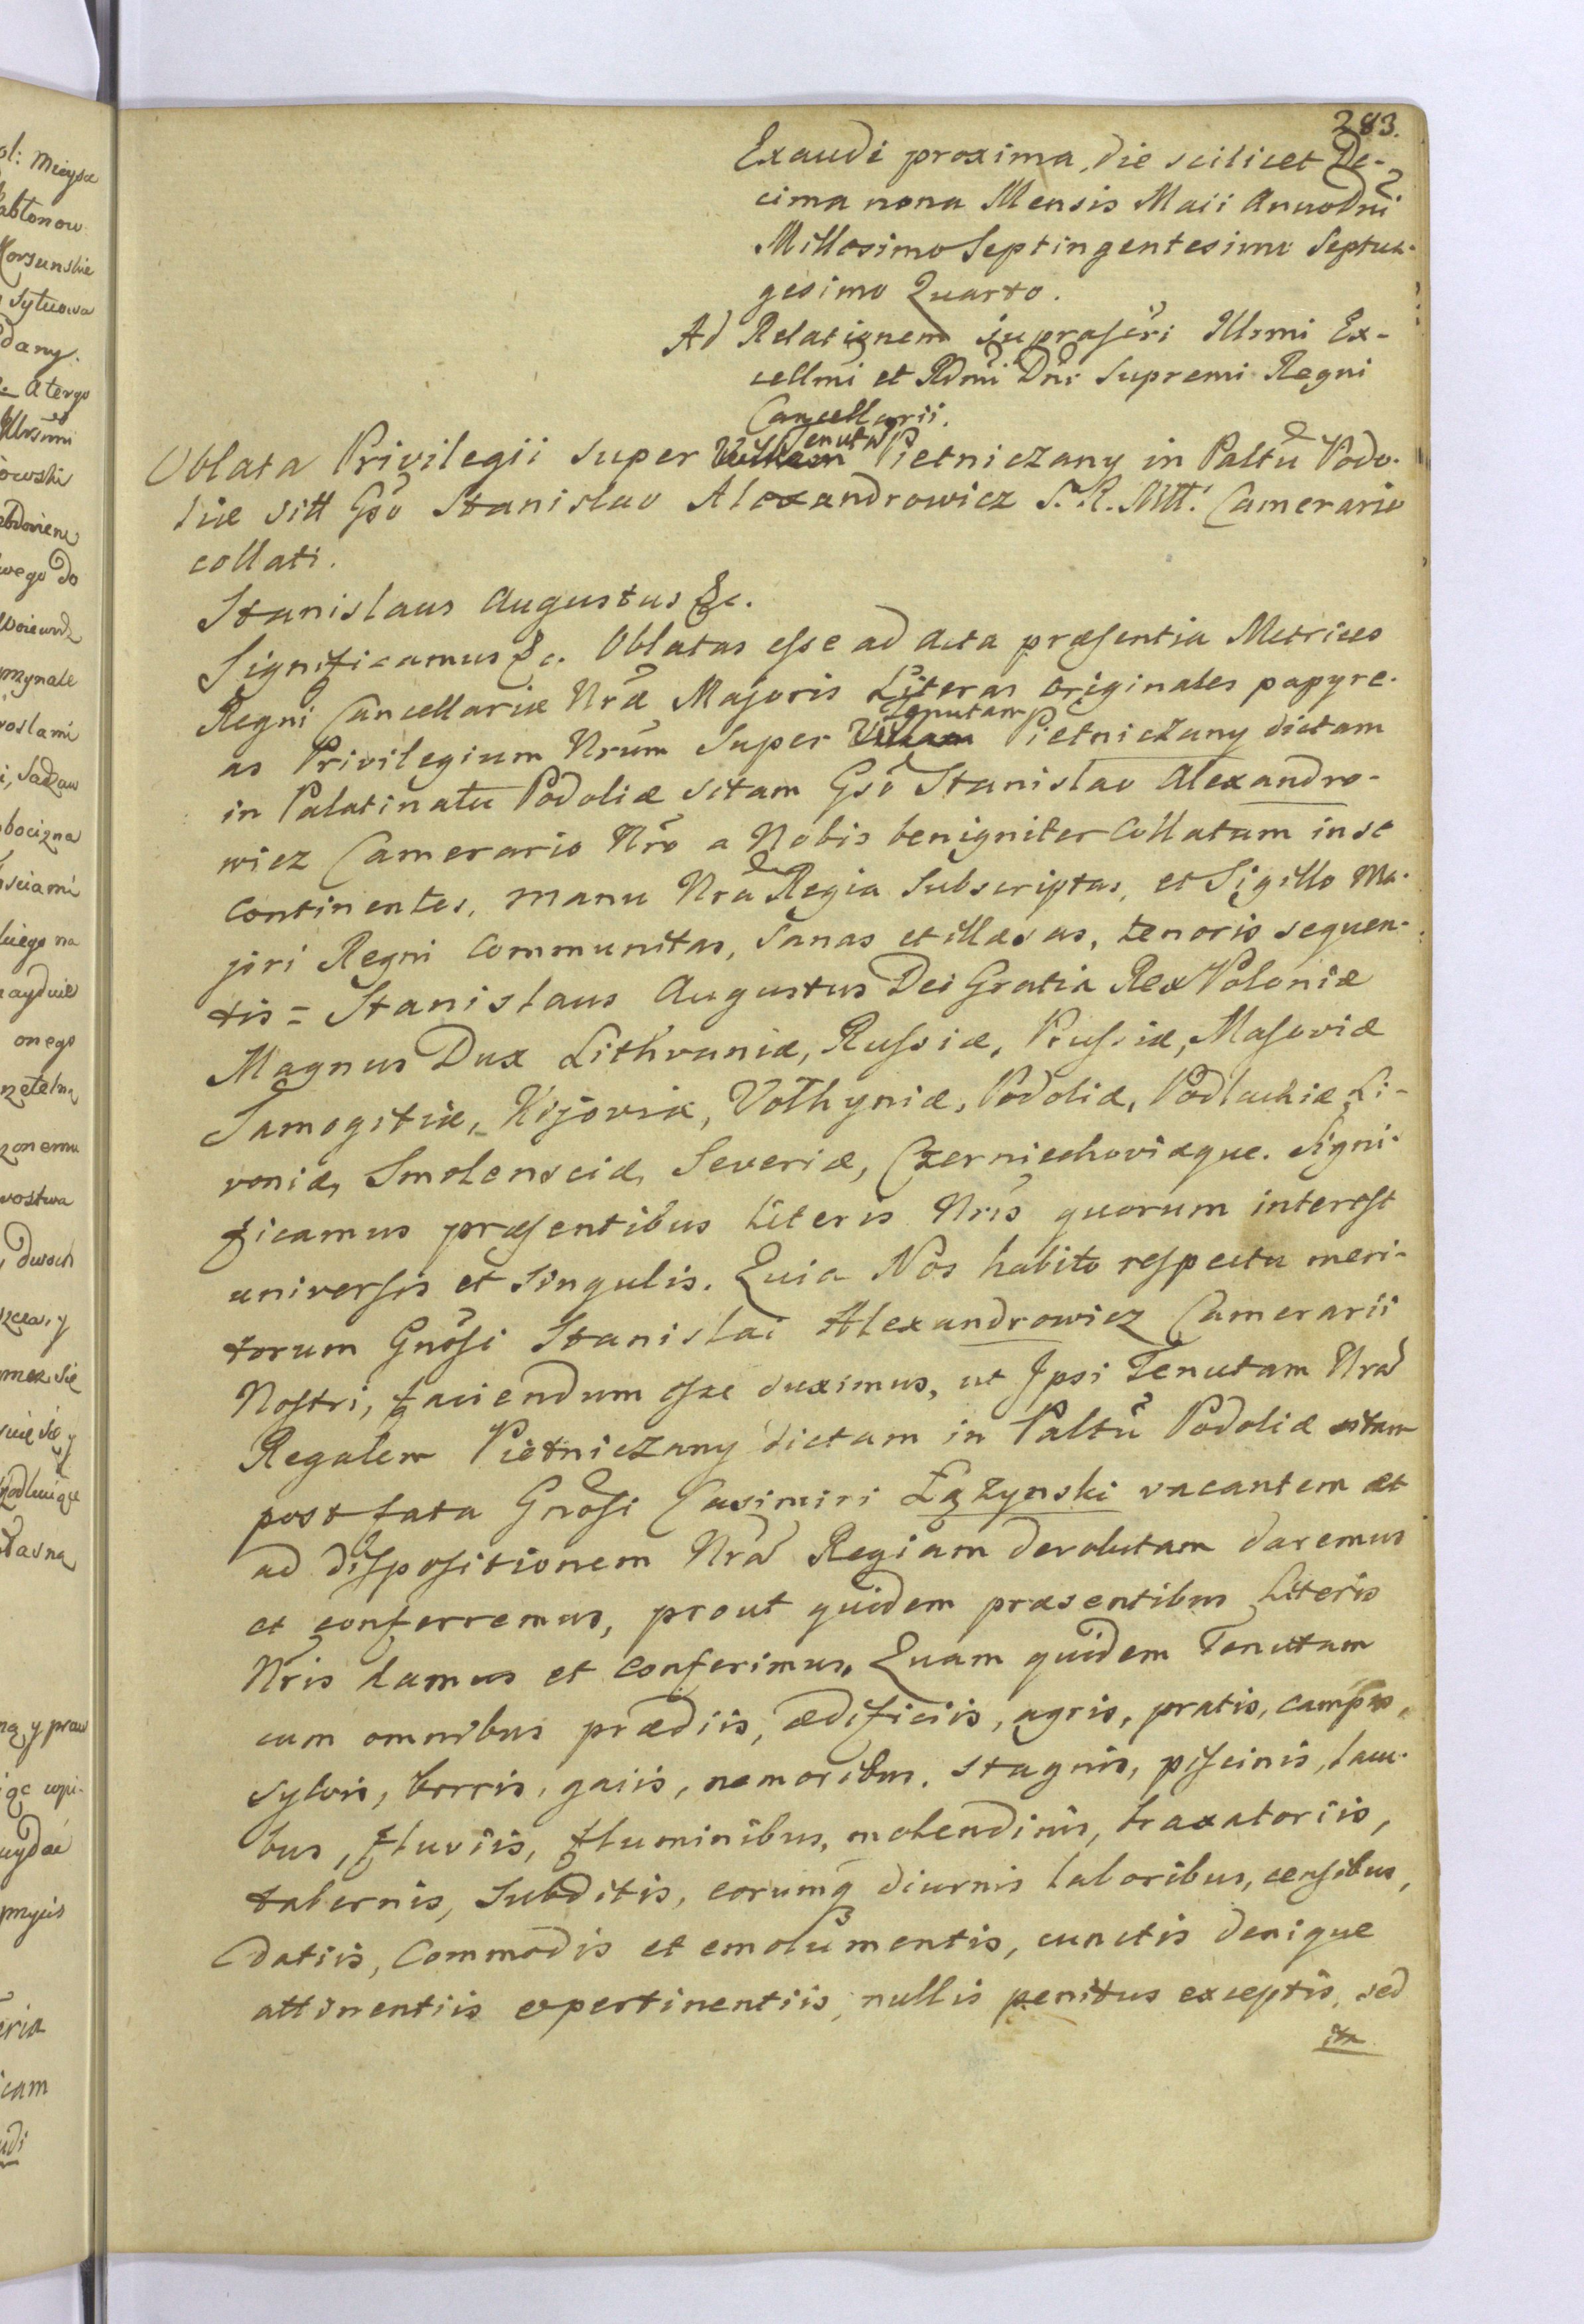 283.
Exaudi proxima, die scilicet De-
cima nona Mensis Maii Anno Dni
Millesimo Septingentesimo Septua-
gesimo Quarto.
Ad Relationem suprascri Illrmi Ex-
cellmi et Rdmi Dni Supremi Regni
Cancellarii.
Oblata Privilegii super Tenuta Pietniczany in Paltu Podo-
liæ sitt Gso Stanislao Alexandrowicz S. R. Mtt. Camerario
collati.
Stanislaus Augustus &c.
Significamus &c. Oblatas esse ad acta præsentia Metrices
Regni Cancellariæ Nræ Majoris Literas originales papyre-
as Privilegium Nrum Super Tenutam Pietniczany dictam
in Palatinatu Podoliæ sitam Gso Stanislao Alexandro-
wicz Camerario Nro a Nobis benigniter Collatum in se
continentes, manu Nra Regia Subscriptas, et Sigillo Ma-
jori Regni Communitas, Sanas et illæsas, tenoris sequen-
tis = Stanislaus Augustus Dei Gratia Rex Poloniæ
Magnus Dux Lithvaniæ, Russiæ, Prussiæ, Masoviæ
Samogitiæ, Kijoviæ, Volhyniæ, Podoliæ, Podlachiæ, Li-
voniæ, Smolensciæ, Severiæ, Czerniechoviæque. Signi-
ficamus præsentibus Literis Nris quorum interest
universis et singulis. Quia Nos habito respectu meri-
torum Gnosi Stanislai Alexandrowicz Camerarii
Nostri, faciendum esse duximus, ut Ipsi Tenutam Nra
Regalem Pietniczany dictam in Paltu Podoliæ sitam
post fata Gnosi Casimiri Łązynski vacantem et
ad dispositionem Nra Regiam devolutam daremus
et conferremus, prout quidem præsentibus Literis
Nris damus et conferimus. Quam quidem Tenutam
cum omnibus prædiis, ædificiis, agris, pratis, campis,
sylvis, borris, gaiis, nemoribus, stagnis, piscinis, lacu-
bus, fluviis, fluminibus, molendinis, braxatoriis,
tabernis, Subditis, eorumq diurnis laboribus, censibus,
datiis, Commodis et emolumentis, cunctis denique
attinentiis expertinentiis, nullis penitus exceptis, sed
ita